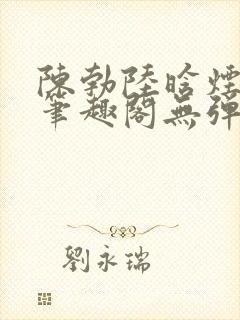 陳勃陸晗煙
筆趣閣無彈
劉永瑞